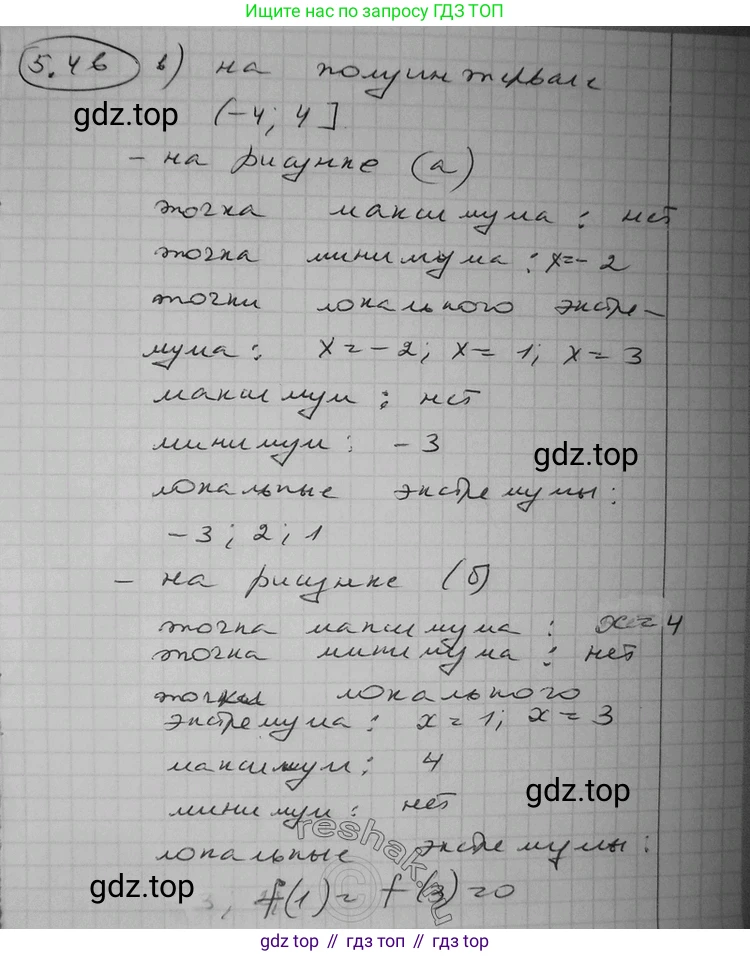 Ищите нас по запросу ГДЗ ТОП
5.4в в) на полуинтервале
gdz.top (-4; 4]
- на рисунке (а)
точка максимума: нет
точка минимума: x=-2
точки локального экстре-
мума: x=-2; x=1; x=3
максимум: нет
минимум: -3
gdz.top
локальные экстремумы:
-3; 2; 1
- на рисунке (б)
точка максимума: x=4
точка минимума: нет
точки локального
экстремума: x=1; x=3
максимум: 4
gdz.top
минимум: нет
reshak.ru
локальные экстремумы:
gdz.top
f(1)= f(3)=0
gdz.top // гдз топ // gdz.top